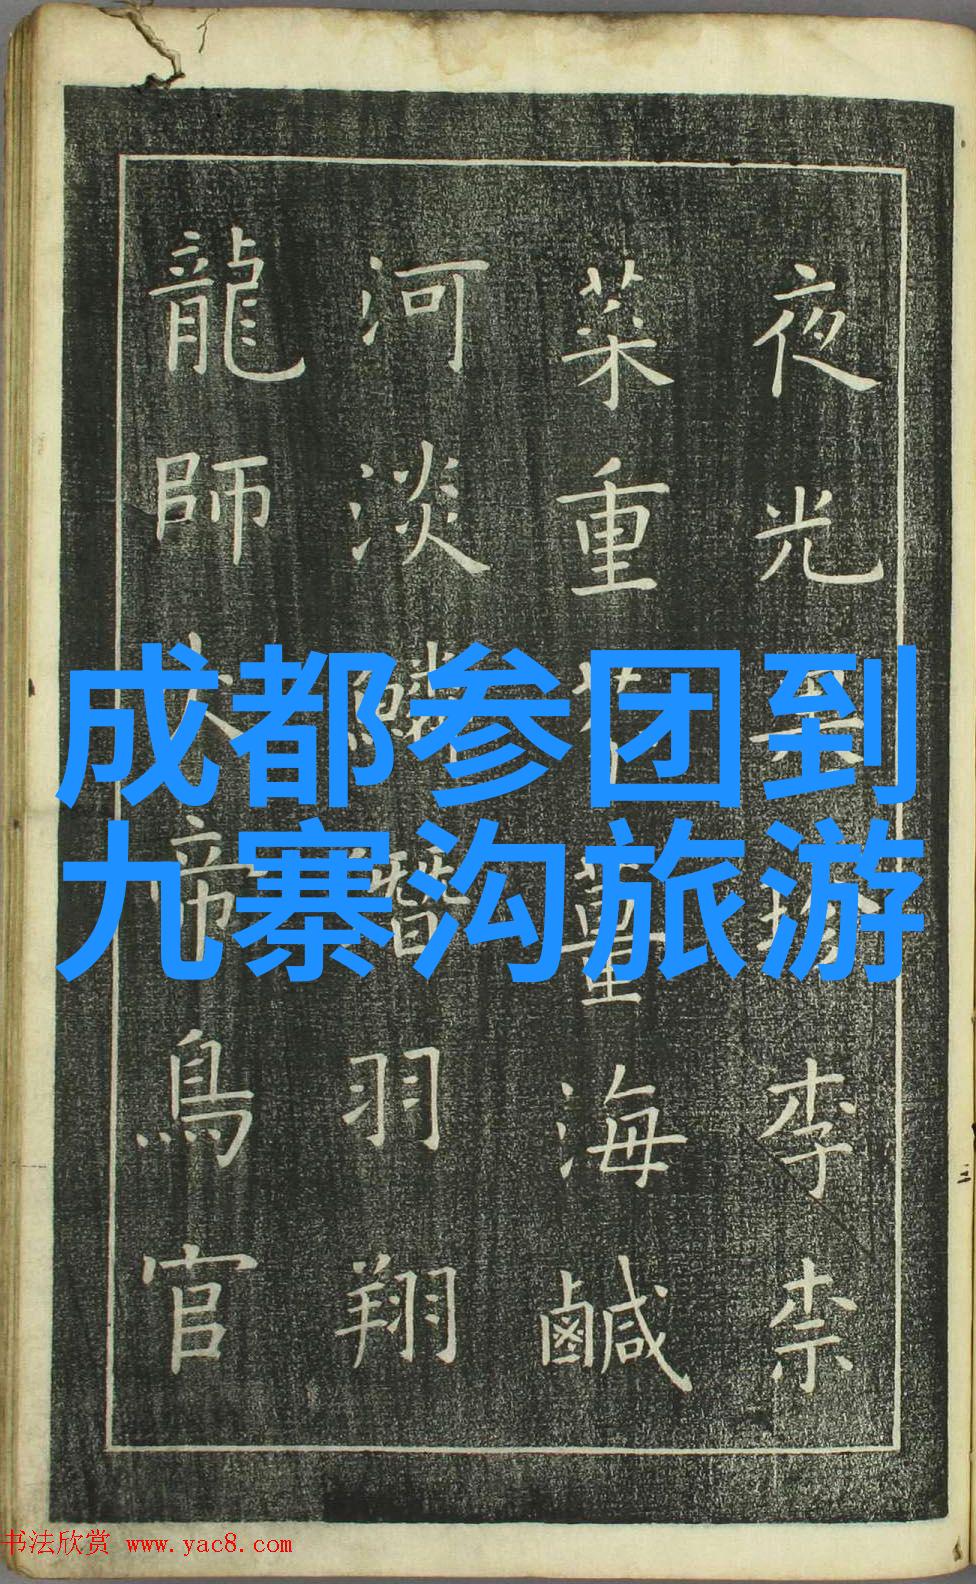 夜光果珍李柰
菜重芥薑海鹹
河淡鱗潛羽翔
龍師火帝鳥官
成都参团到
九寨沟旅游
书法欣赏 www.yac8.com